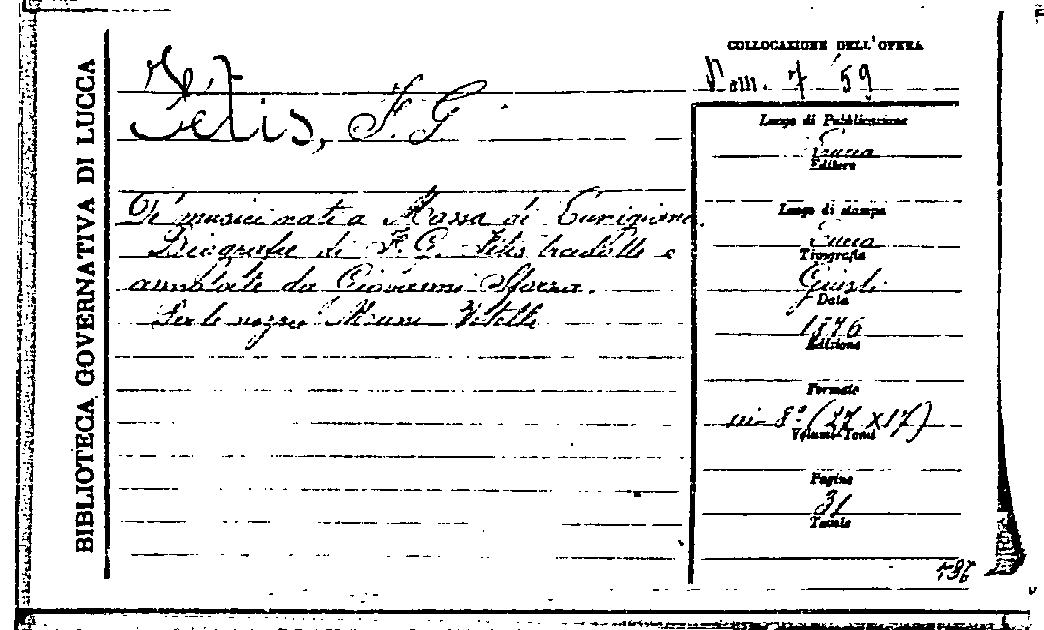 BIBLIOTECA GOVERNATIVA DI LUCCA
Fétis, F. G
De' musici nati a Massa di Lunigiana.
Biografie di F. G. Fétis tradotte e
annotate da Giovanni Sforza.
Per le nozze Vitelli
COLLOCAZIONE DELL'OPERA
7 59
Luogo di Pubblicazione
Lucca
Editore
Luogo di stampa
Lucca
Tipografia
Giusti
Data
1876
Edizione
Formato
in-8º (27 X 17)
Volumi-Tomi
Pagine
31
Tavole